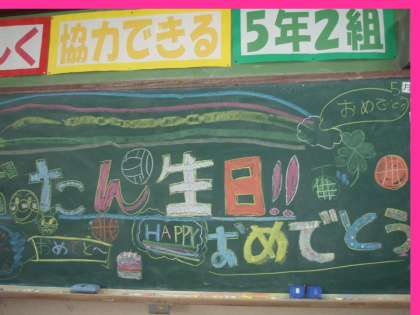 しく 協力できる 5年2組
5
おめでとう
たん生日!!
おめでとう
HAPPY